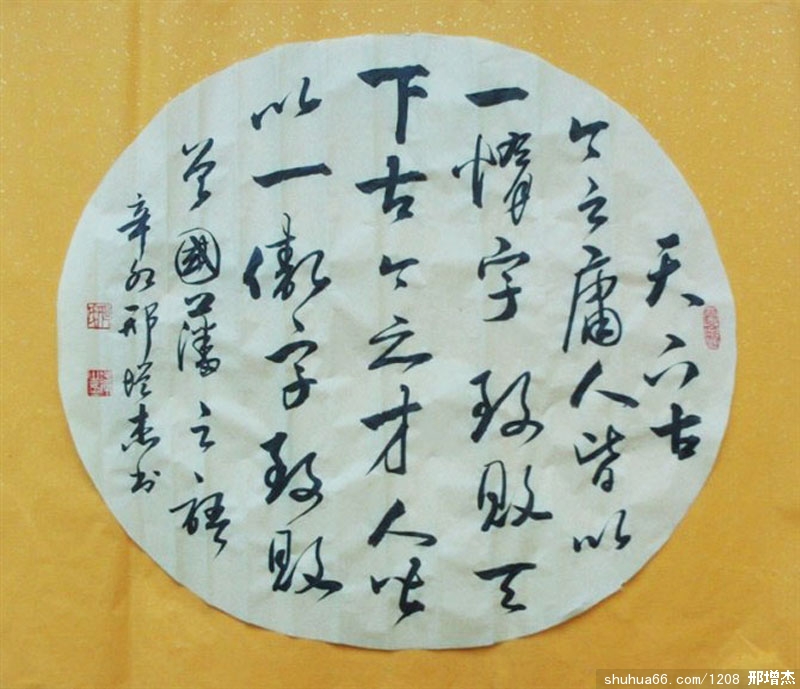 天下古
今之庸人皆以
一惰字致败天
下古今之才人皆
以一傲字致败
曾國藩之语
辛卯邢增杰书
shuhua66.com/1208 邢增杰